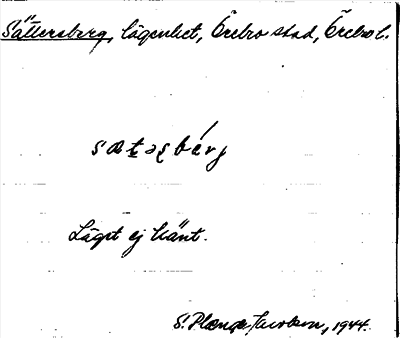 Sättersberg, lägenhet, Örebro stad, Örebro l.
sætəʂbárj
Läget ej känt.
S. Plænge Jacobson, 1944.